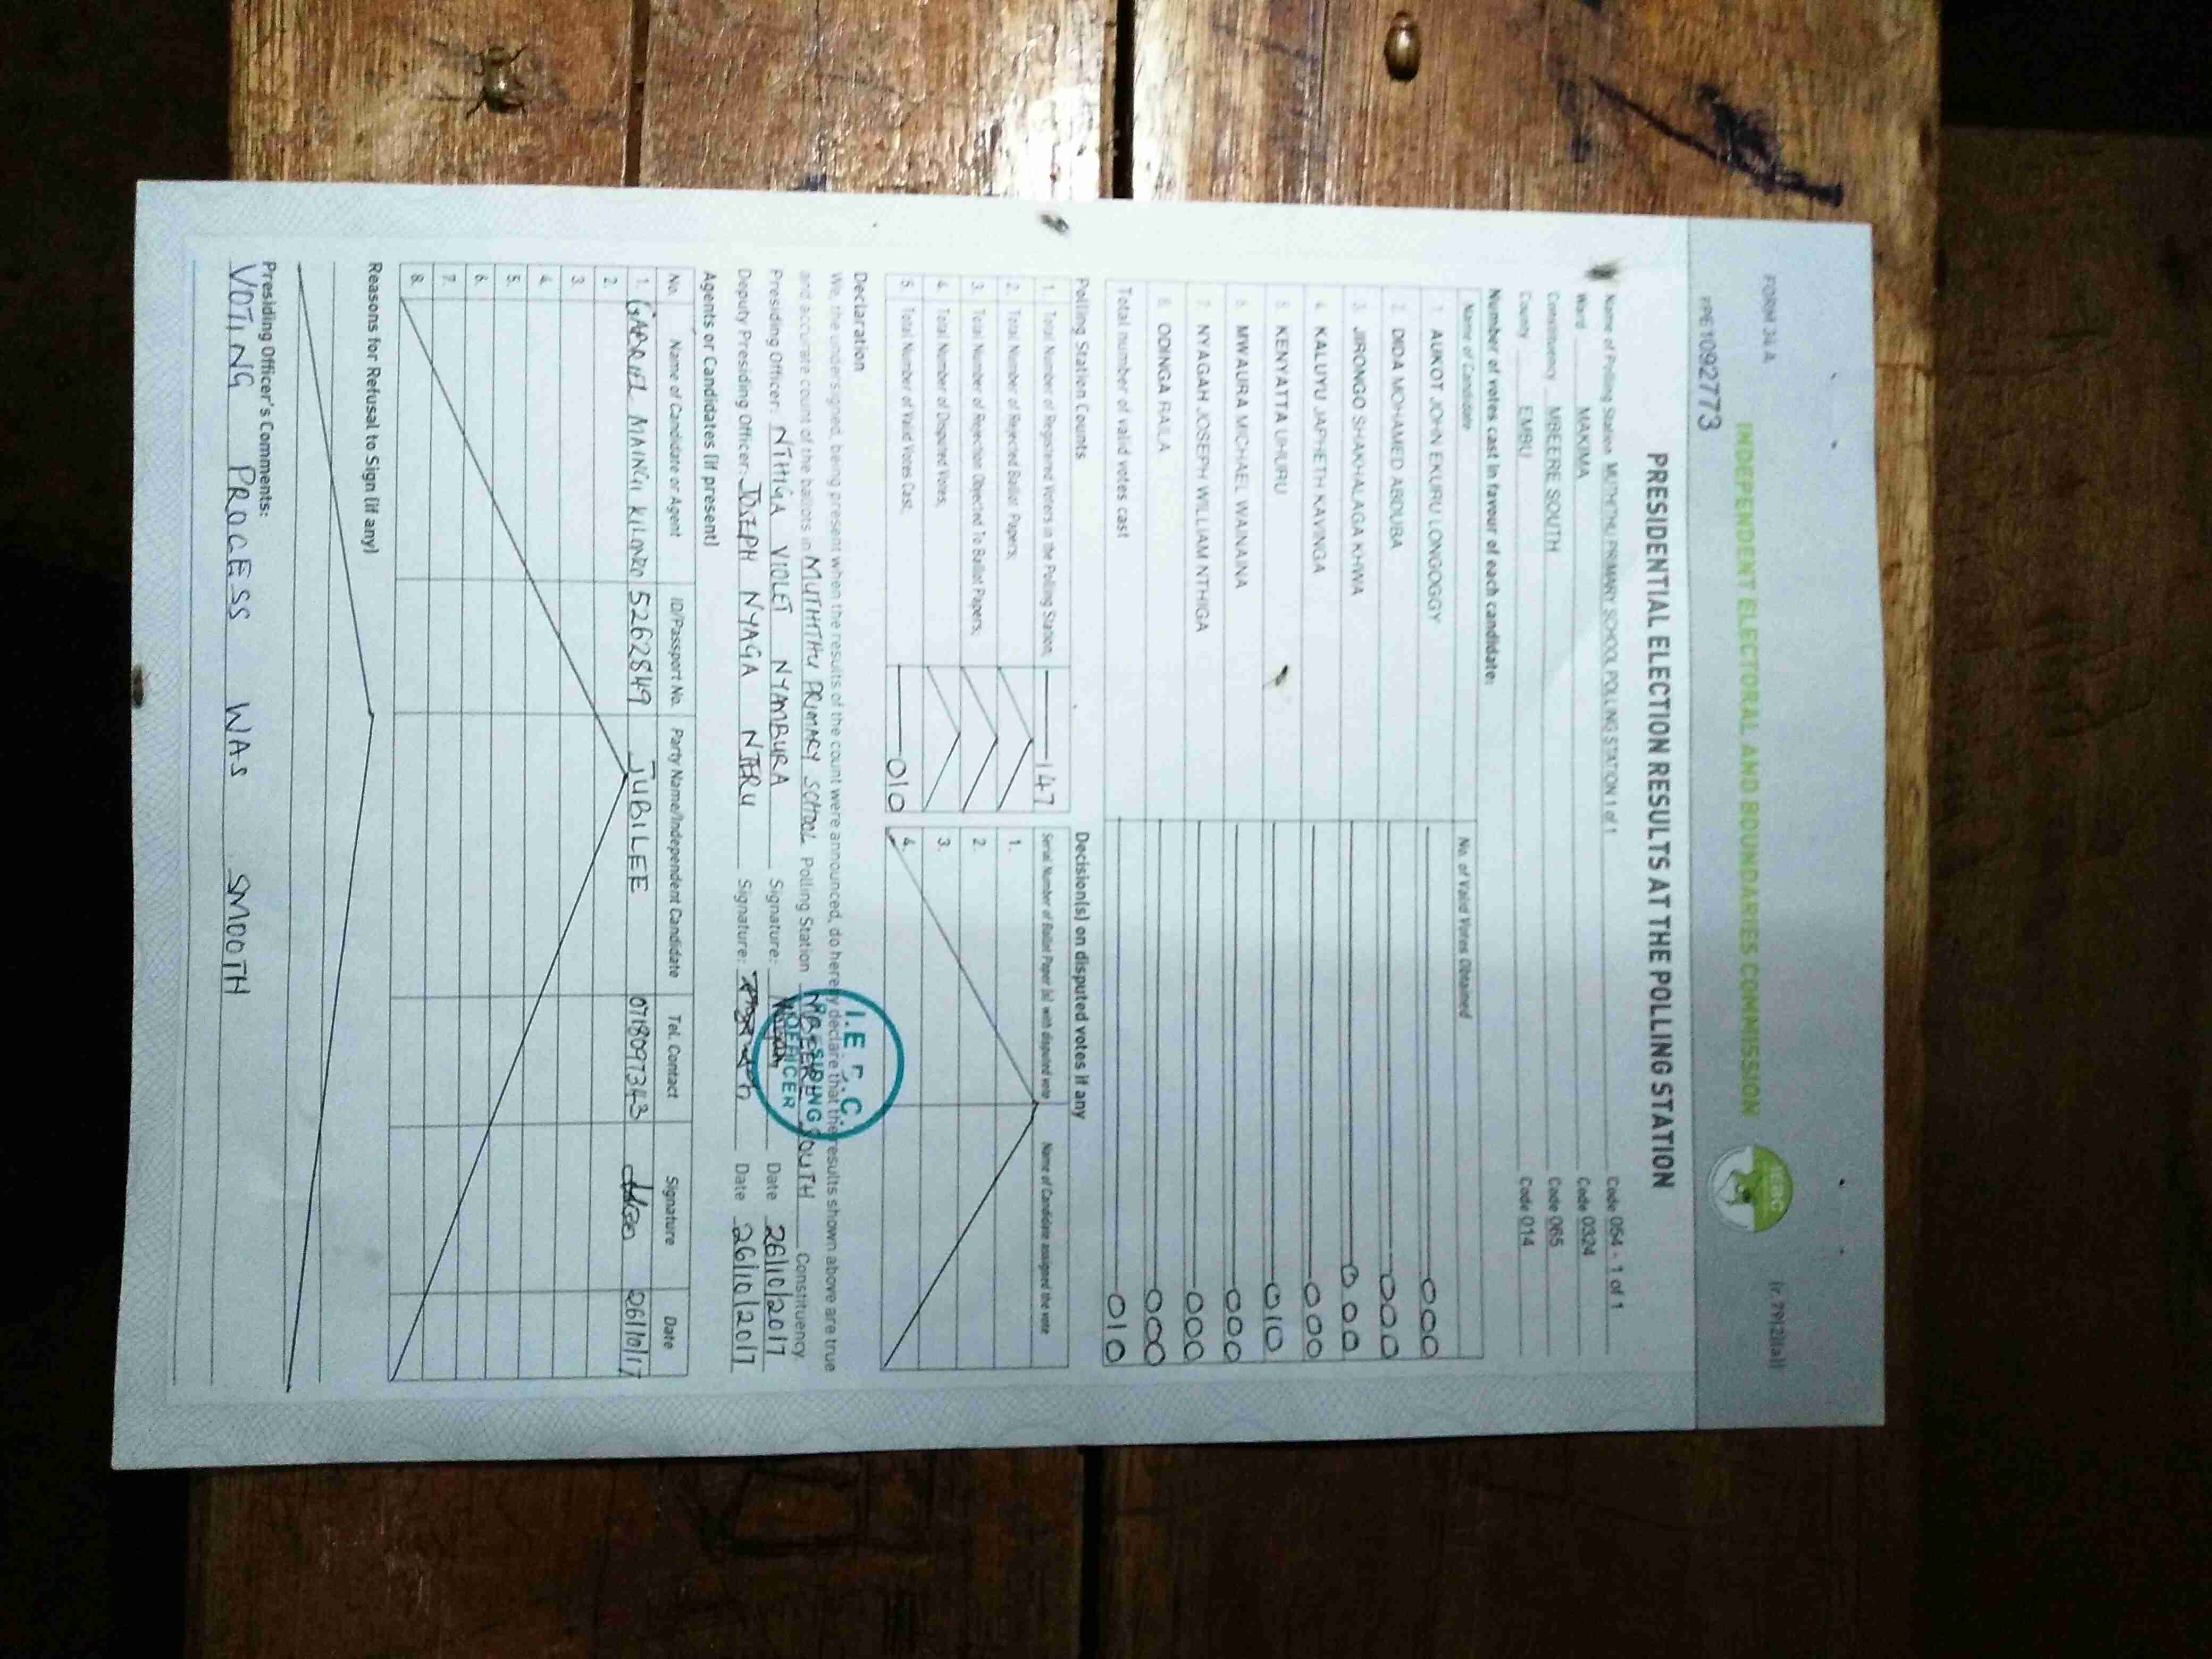 FORM 34 A
(r. 79(2)(a))
INDEPENDENT ELECTORAL AND BOUNDARIES COMMISSION
IEBC
PRE1092773
PRESIDENTIAL ELECTION RESULTS AT THE POLLING STATION
Name of Polling Station MUTHITHU PRIMARY SCHOOL POLLING STATION 1 of 1 Code 054 - 1 of 1
Ward MAKIMA Code 0324
Constituency MBEERE SOUTH Code 065
County EMBU Code 014
Number of votes cast in favour of each candidate:
Name of Candidate No. of Valid Votes Obtained
1. AUKOT JOHN EKURU LONGOGGY 000
2. DIDA MOHAMED ABDUBA 000
3. JIRONGO SHAKHALAGA KHWA 000
4. KALUYU JAPHETH KAVINGA 000
5. KENYATTA UHURU 010
6. MWAURA MICHAEL WAINAINA 000
7. NYAGAH JOSEPH WILLIAM NTHIGA 000
8. ODINGA RAILA 000
Total number of valid votes cast 010
Polling Station Counts Decision(s) on disputed votes if any
1. Total Number of Registered Voters in the Polling Station; 147 Serial Number of Ballot Paper (s) with disputed vote Name of Candidate assigned the vote
2. Total Number of Rejected Ballot Papers; 1.
3. Total Number of Rejection Objected To Ballot Papers; 2.
4. Total Number of Disputed Votes; 3.
5. Total Number of Valid Votes Cast; 010 4.
Declaration
We, the undersigned, being present when the results of the count were announced, do hereby declare that the results shown above are true
and accurate count of the ballots in MUTHITHU PRIMARY SCHOOL Polling Station MBEERE SOUTH Constituency
Presiding Officer: NTHIGA VIOLET NYAMBURA Signature: Date 26/10/2017
Deputy Presiding Officer: JOSEPH NYAGA NTERU Signature: Date 26/10/2017
I.E.B.C.
PRESIDING
OFFICER
Agents or Candidates (if present)
No. Name of Candidate or Agent ID/Passport No. Party Name/Independent Candidate Tel. Contact Signature Date
1. GABRIEL MAINGI KILONZO 5262849 JUBILEE 0718097343 26/10/17
2.
3.
4.
5.
6.
7.
8.
Reasons for Refusal to Sign (if any)
Presiding Officer's Comments:
VOTING PROCESS WAS SMOOTH